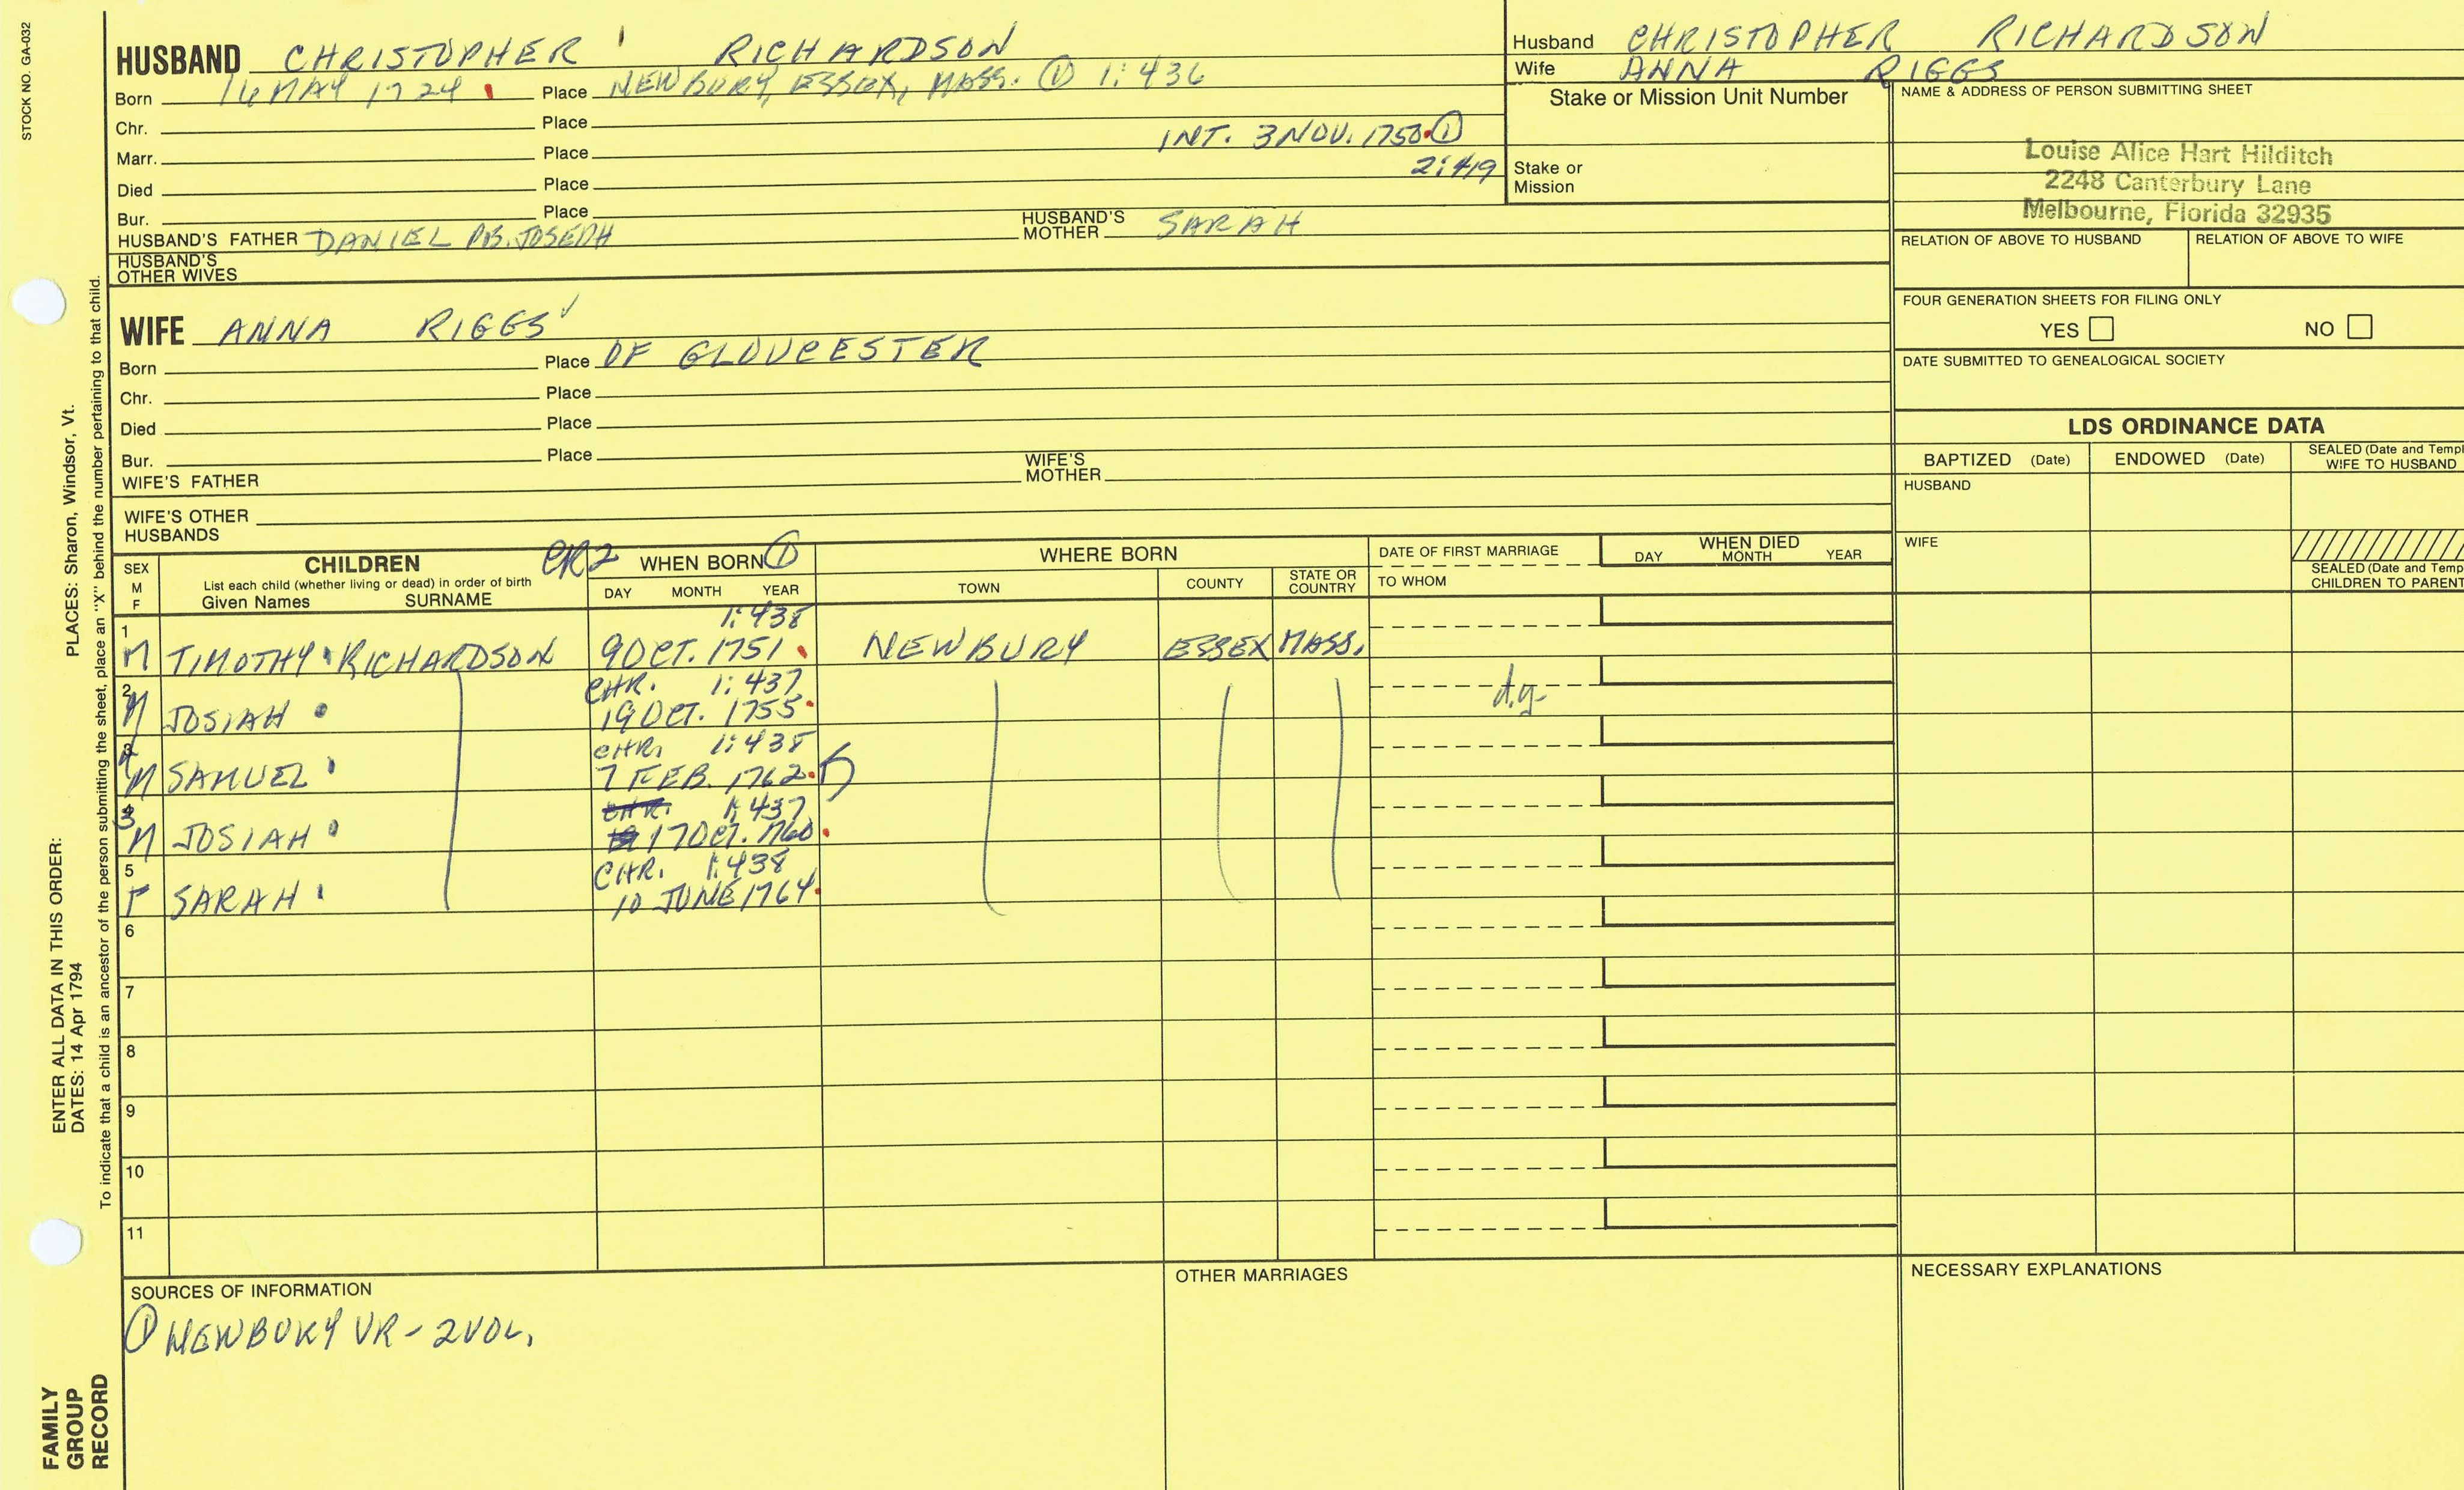 STOCK NO. GA-032
HUSBAND CHRISTOPHER RICHARDSON
Born 16 MAY 1724 Place NEWBURY, ESSEX, MASS. ① 1:436
Chr. Place
INT. 3 NOV. 1750 ①
Marr. Place
2:419
Died Place
Bur. Place
HUSBAND'S FATHER DANIEL JOSEPH HUSBAND'S MOTHER SARAH
HUSBAND'S OTHER WIVES
WIFE ANNA RIGGS
Born Place OF GLOUCESTER
Chr. Place
Died Place
Bur. Place
WIFE'S FATHER WIFE'S MOTHER
WIFE'S OTHER HUSBANDS
Husband CHRISTOPHER RICHARDSON
Wife ANNA RIGGS
Stake or Mission Unit Number
Stake or Mission
NAME & ADDRESS OF PERSON SUBMITTING SHEET
Louise Alice Hart Hilditch
2248 Canterbury Lane
Melbourne, Florida 32935
RELATION OF ABOVE TO HUSBAND RELATION OF ABOVE TO WIFE
FOUR GENERATION SHEETS FOR FILING ONLY
YES NO
DATE SUBMITTED TO GENEALOGICAL SOCIETY
LDS ORDINANCE DATA
BAPTIZED (Date) ENDOWED (Date) SEALED (Date and Templ
WIFE TO HUSBAND
HUSBAND
WIFE
SEALED (Date and Temp
CHILDREN TO PARENT
SEX
M
F
CHILDREN CR2
List each child (whether living or dead) in order of birth
Given Names SURNAME
WHEN BORN ①
DAY MONTH YEAR
WHERE BORN
TOWN COUNTY STATE OR COUNTRY
DATE OF FIRST MARRIAGE
TO WHOM
WHEN DIED
DAY MONTH YEAR
1 1:438
M TIMOTHY RICHARDSON 9 OCT. 1751 NEWBURY ESSEX MASS.
2 CHR. 1:437
M JOSIAH 19 OCT. 1755 d.y.
4 CHR. 1:438
M SAMUEL 7 FEB. 1762
3 CHR. 1:437
M JOSIAH 17 OCT. 1760
5 CHR. 1:438
F SARAH 10 JUNE 1764
6
7
8
9
10
11
SOURCES OF INFORMATION
① NEWBURY VR - 2 VOL.
OTHER MARRIAGES
NECESSARY EXPLANATIONS
PLACES: Sharon, Windsor, Vt.
ENTER ALL DATA IN THIS ORDER:
DATES: 14 Apr 1794
To indicate that a child is an ancestor of the person submitting the sheet, place an "X" behind the number pertaining to that child.
FAMILY
GROUP
RECORD